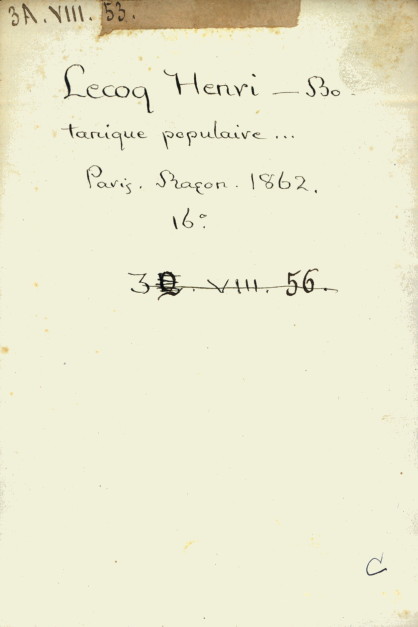 3A.VIII. 53.
Lecoq Henri — Bo-
tanique populaire...
Paris. Raçon. 1862.
16°
VIII. 56.
C